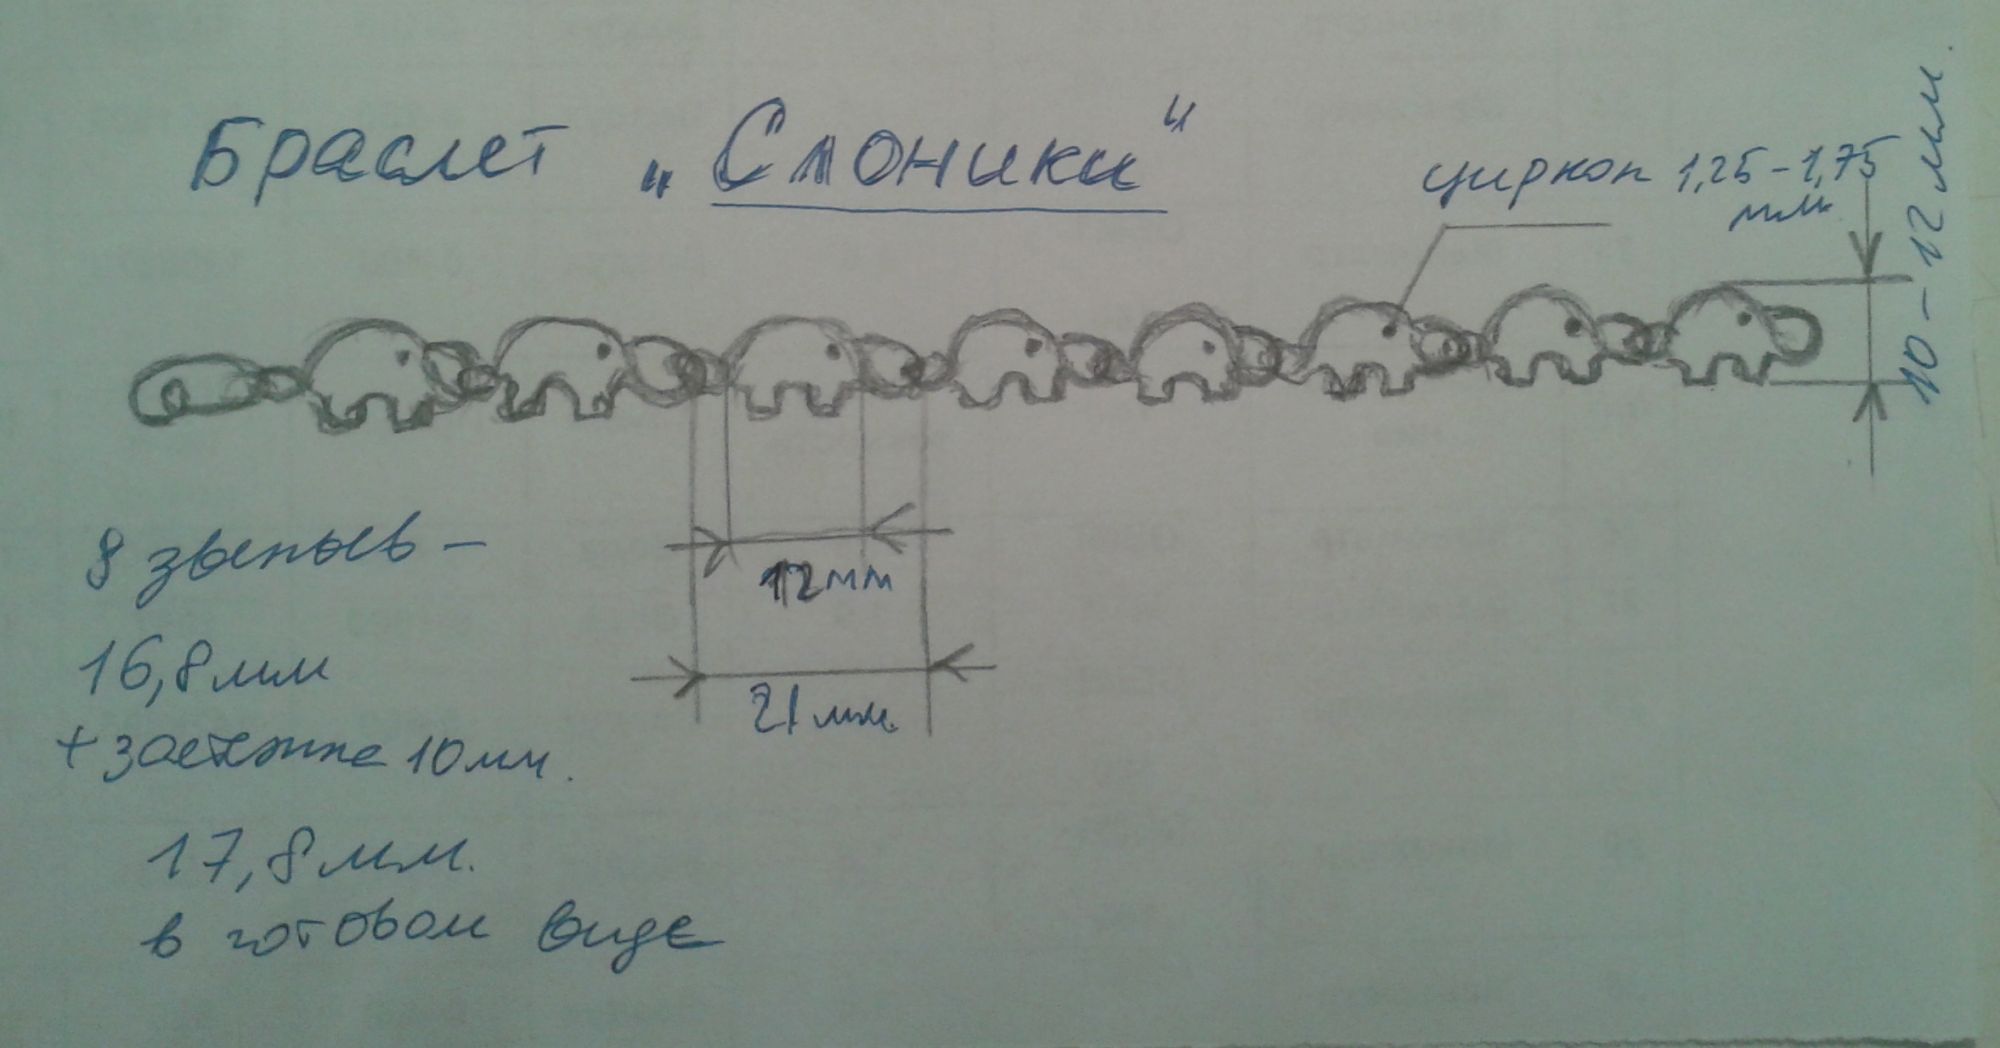 Браслет „Слоники“
циркон 1,25-1,75
мм
10-12 мм.
12мм
21мм.
8 звеньев -
16,8мм
+застежка 10мм.
17,8мм.
в готовом виде